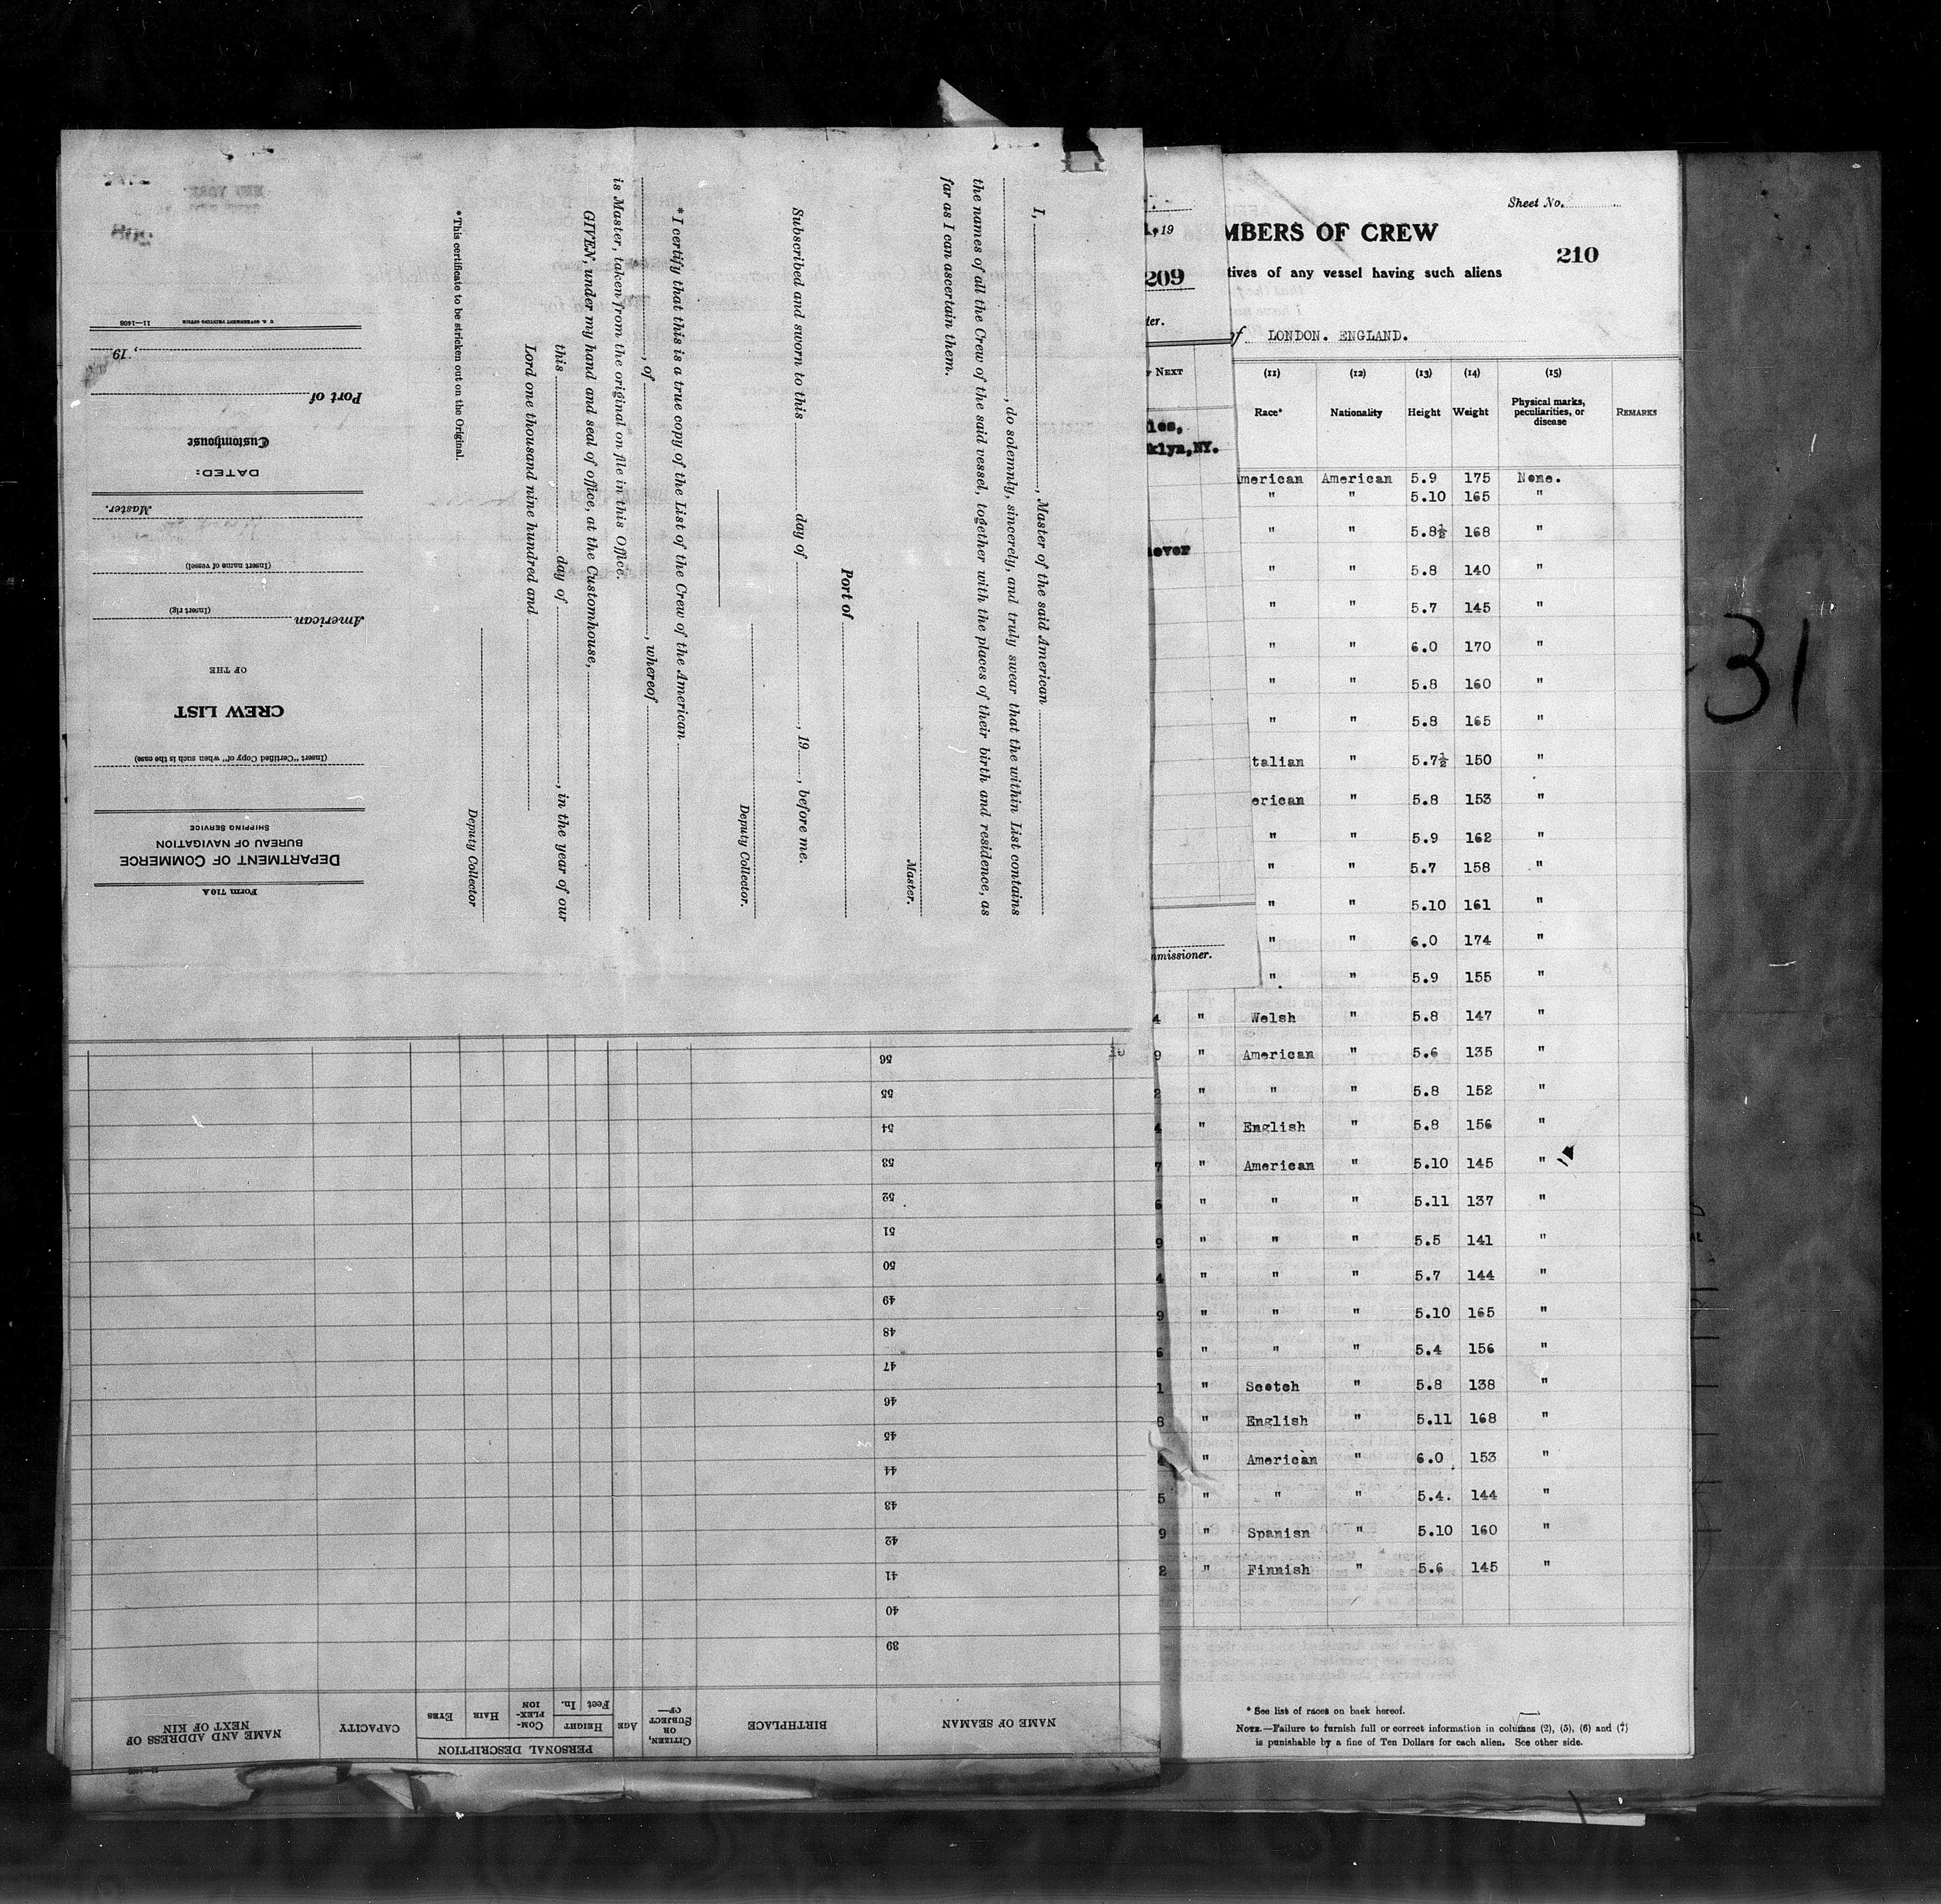 I, , Master of the said American
, do solemnly, sincerely, and truly swear that the within List contains
the names of all the Crew of the said vessel, together with the places of their birth and residence, as
far as I can ascertain them.
Master.
Port of
Subscribed and sworn to this day of , 19 , before me.
Deputy Collector.
* I certify that this is a true copy of the List of the Crew of the American
, of , whereof
is Master, taken from the original on file in this Office.
GIVEN, under my hand and seal of office, at the Customhouse,
this day of , in the year of our
Lord one thousand nine hundred and
Deputy Collector
*This certificate to be stricken out on the Original.
Form 710A
DEPARTMENT OF COMMERCE
BUREAU OF NAVIGATION
SHIPPING SERVICE
(Insert "Certified Copy of" when such is the case)
CREW LIST
OF THE
American
(Insert rig)
(Insert name of vessel)
Master.
DATED:
Customhouse
Port of
, 19
11—1408 U. S. GOVERNMENT PRINTING OFFICE
NAME OF SEAMAN BIRTHPLACE CITIZEN, OR SUBJECT OF— AGE PERSONAL DESCRIPTION HEIGHT Feet In. COM-PLEX-ION HAIR EYES CAPACITY NAME AND ADDRESS OF NEXT OF KIN
39
40
41
42
43
44
45
46
47
48
49
50
51
52
53
54
55
56
19
209
NEXT
klyn,NY.
mmissioner.
Sheet No.
MBERS OF CREW
210
tives of any vessel having such aliens
of LONDON. ENGLAND.
(11) (12) (13) (14) (15)
Race* Nationality Height Weight Physical marks, peculiarities, or disease REMARKS
merican American 5.9 175 None.
" " 5.10 165 "
" " 5.8½ 168 "
" " 5.8 140 "
" " 5.7 145 "
" " 6.0 170 "
" " 5.8 160 "
" " 5.8 165 "
talian " 5.7½ 150 "
erican " 5.8 153 "
" " 5.9 162 "
" " 5.7 158 "
" " 5.10 161 "
" " 6.0 174 "
" " 5.9 155 "
4 " Welsh " 5.8 147 "
9 " American " 5.6 135 "
2 " " " 5.8 152 "
4 " English " 5.8 156 "
7 " American " 5.10 145 "
6 " " " 5.11 137 "
9 " " " 5.5 141 "
4 " " " 5.7 144 "
9 " " " 5.10 165 "
6 " " " 5.4 156 "
1 " Scotch " 5.8 138 "
8 " English " 5.11 168 "
" American " 6.0 153 "
5 " " " 5.4. 144 "
9 " Spanish " 5.10 160 "
2 " Finnish " 5.6 145 "
* See list of races on back hereof.
NOTE.—Failure to furnish full or correct information in columns (2), (5), (6) and (7)
is punishable by a fine of Ten Dollars for each alien. See other side.
31